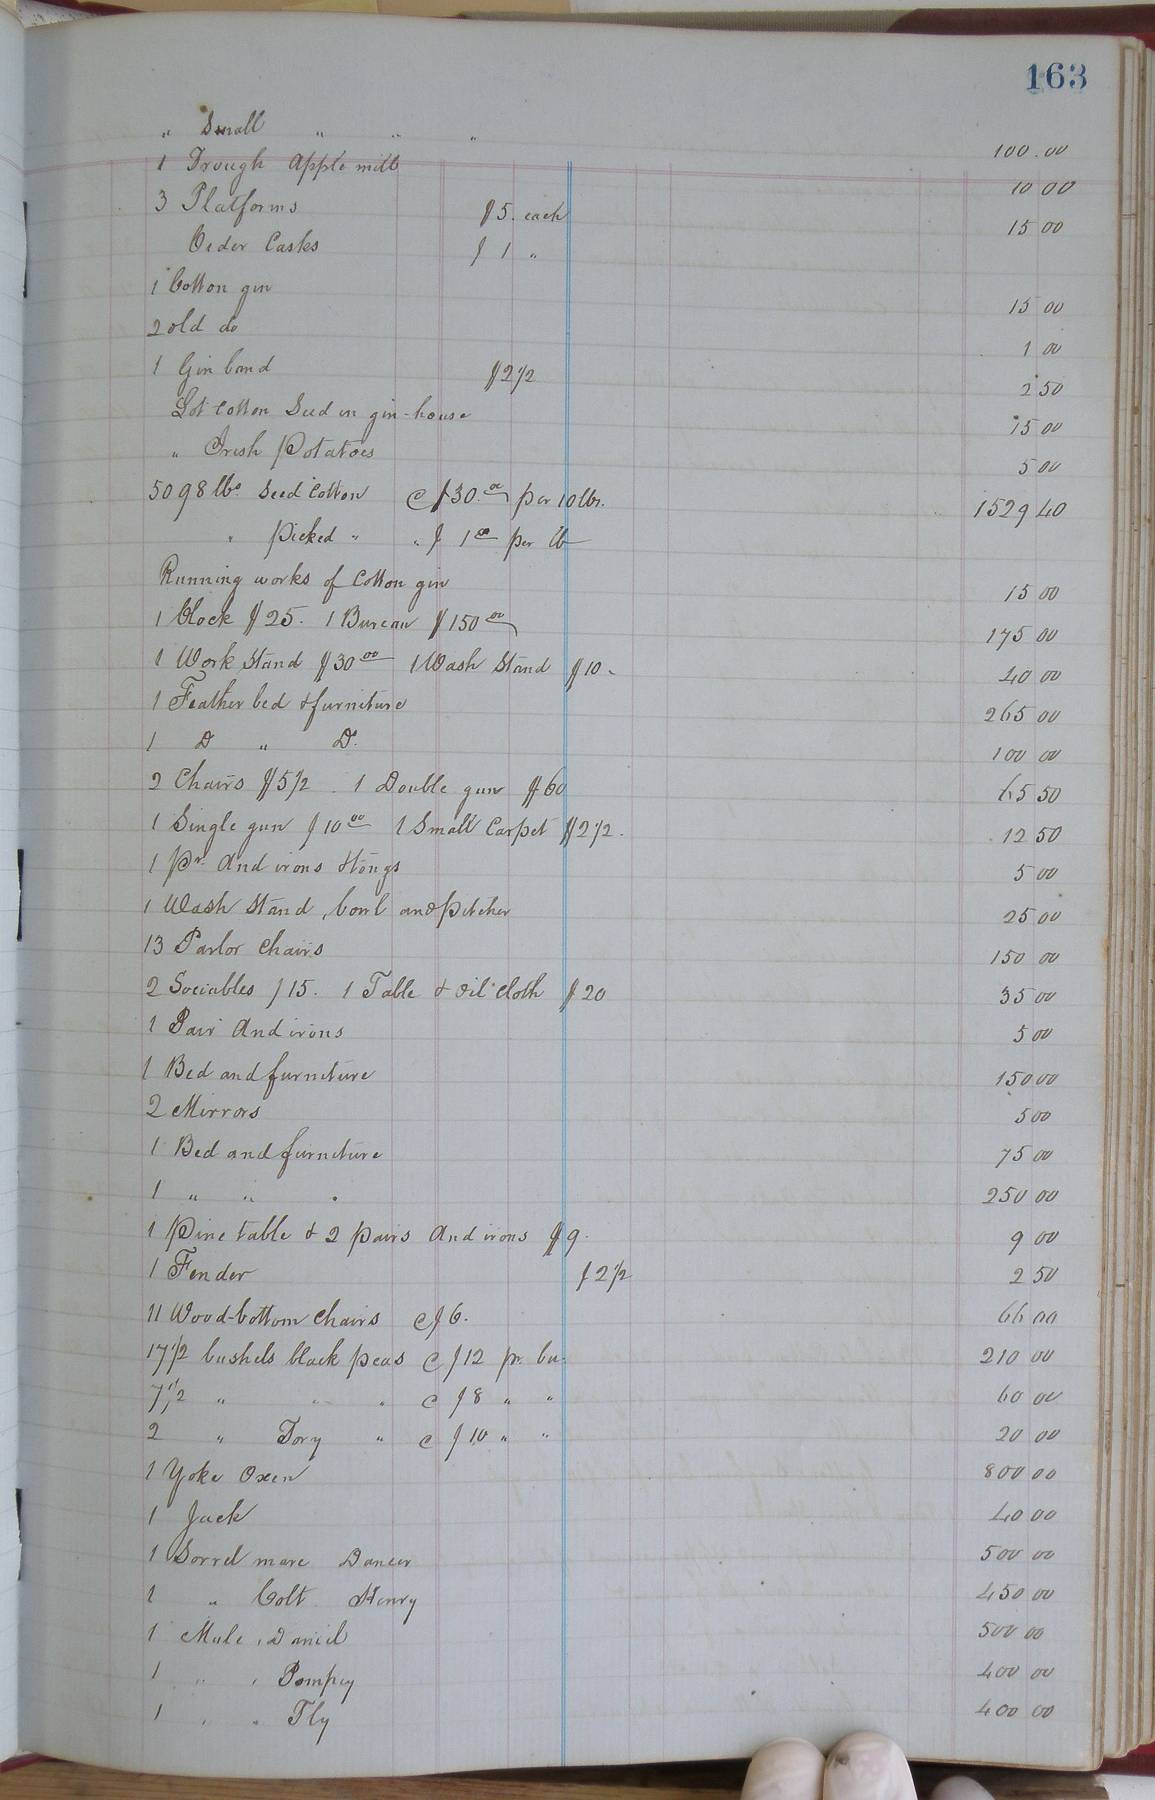 163
" Small " " " 100.00
1 Trough Apple mill 10 00
3 Platforms $5. each 15 00
Cider Casks $ 1 "
1 Cotton gin 15 00
2 old do 1 00
1 Gin band $2 1/2 2 50
Lot Cotton Seed in gin-house 15 00
" Irish Potatoes 5 00
5098 lbs. Seed Cotton @ $30.00 per 10 lbs. 1529 40
" Picked " " $ 1 00 per lb
Running works of Cotton gin 15 00
1 Clock $25. 1 Bureau $150 00 175 00
1 Work Stand $30 00 1 Wash Stand $10. 40 00
1 Feather bed & furniture 265 00
1 D " D. 100 00
2 Chairs $5 1/2 . 1 Double gun $60 65 50
1 Single gun $10 00 1 Small Carpet $2 1/2. 12 50
1 Pr. And irons & tongs 5 00
1 Wash Stand, bowl and pitcher 25 00
13 Parlor Chairs 150 00
2 Sociables $15. 1 Table & oil cloth $20 35 00
1 Pair And irons 5 00
1 Bed and furniture 150 00
2 Mirrors 5 00
1 Bed and furniture 75 00
1 " " " 250 00
1 Pine table & 2 pairs And irons $9. 9 00
1 Fender $2 1/2 2 50
11 Wood-bottom Chairs @ $6. 66 00
17 1/2 bushels black peas @ $12 pr. bu. 210 00
7 1/2 " " " @ $8 " " 60 00
2 " Tory " @ $10 " " 20 00
1 Yoke Oxen 800 00
1 Jack 40 00
1 Sorrel mare Dancer 500 00
1 " Colt Henry 450 00
1 Mule, Daniel 500 00
1 " " Pompey 400 00
1 " " Fly 400 00